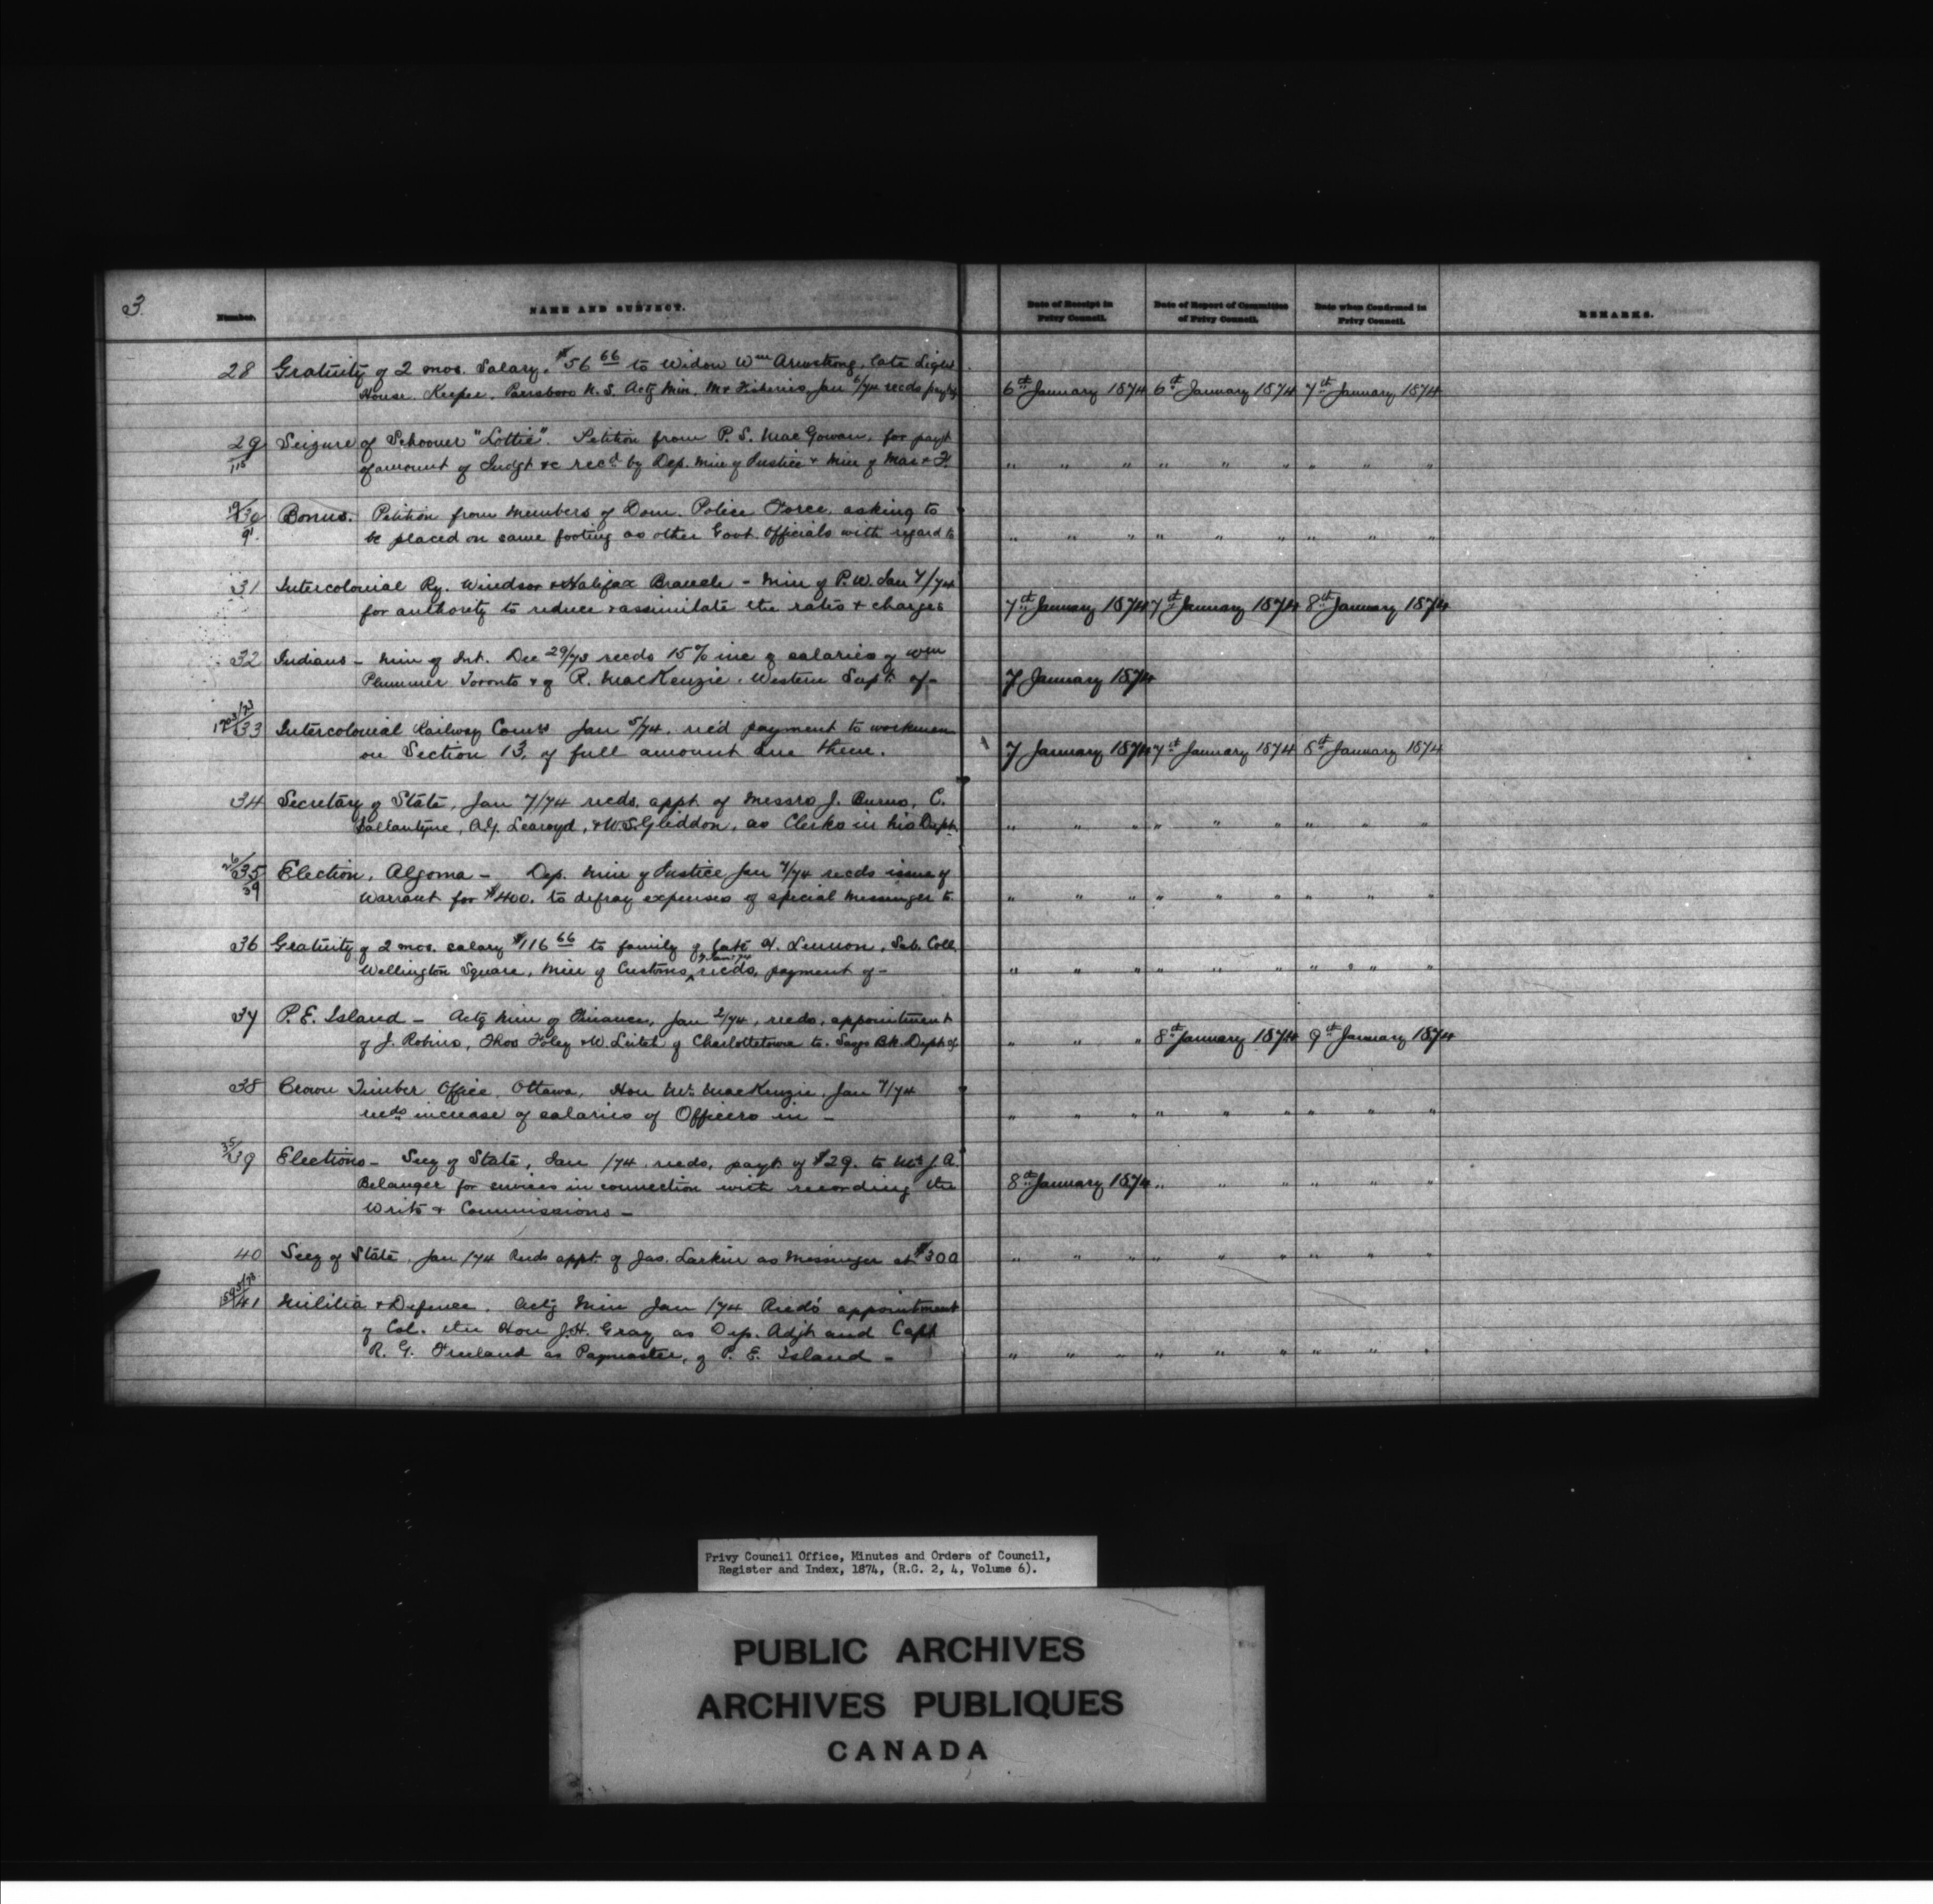 3.
Number. NAME AND SUBJECT. Date of Receipt in Privy Council. Date of Report of Committee of Privy Council. Date when Confirmed in Privy Council. REMARKS.
28 Gratuity of 2 mos. Salary. $56 66 to Widow Wm Armstrong, late Light
House Keeper, Parrsboro N.S. Actg Min. Mr Fisheries Jan 6/74 recds 6th January 1874 6th January 1874 7th January 1874
29 Seizure of Schooner "Lottie". Petition from P. S. MacGowan, for payt
115 of amount of Judgt &c recd by Dep. Min of Justice & Min of Mar & F. " " " " " " " " "
30 Bonus. Petition from Members of Dom. Police Force, asking to
91. be placed on same footing as other Govt. Officials with regard to " " " " " " " " "
31 Intercolonial Ry. Windsor & Halifax Branch - Min of P.W. Jan 7/74
for authority to reduce & assimilate the rates & charges 7th January 1874 7th January 1874 8th January 1874
32 Indians - Min of Int. Dec 29/73 recds 15% inc of salaries of Wm
Plummer Toronto & of R. MacKenzie. Western Supt. of - 7 January 1874
33 Intercolonial Railway Comrs Jan 5/74. re'd payment to workmen
on Section 13, of full amount due them. 7 January 1874 7th January 1874 8th January 1874
34 Secretary of State, Jan 7/74 recds. appt. of Messrs J. Burns, C.
Ballantyne, A.J. Learoyd, & W.S. Gliddon, as Clerks in his Dept. " " " " " " " " "
26/35 Election, Algoma - Dep. Min of Justice Jan 7/74 recds issue of
39 Warrant for $400. to defray expenses of special Messenger to. " " " " " " " " "
36 Gratuity of 2 mos. salary $116 66 to family of late H. Lemon, Sub. Coll.
Wellington Square, Min of Customs, 7 Jan/74 recds, payment of - " " " " " " " " "
37 P. E. Island - Actg Min of Finance, Jan 2/74, recds, appointment
of J. Robins, Thos Foley & W. Leitch of Charlottetown to. Savgs Bk. Dept. of " " " 8th January 1874 9th January 1874
38 Crown Timber Office, Ottawa, Hon Mr. MacKenzie, Jan 7/74
recds increase of salaries of Officers in - " " " " " " " " "
35/39 Elections - Secy of State, Jan /74 recds, payt. of $29. to Mr J. A.
Belanger for services in connection with recording the 8th January 1874 " " " " " "
Writs & Commissions -
40 Secy of State, Jan /74 Recds appt. of Jas. Larkin as Messenger at $300 " " " " " " " " "
41 Militia & Defence. Actg Min Jan /74 Recds appointment
of Col. the Hon J.H. Gray as Dep. Adjt. and Capt
R. G. as Paymaster, of P. E. Island - " " " " " " " " "
Privy Council Office, Minutes and Orders of Council,
Register and Index, 1874, (R.G. 2, 4, Volume 6).
PUBLIC ARCHIVES
ARCHIVES PUBLIQUES
CANADA